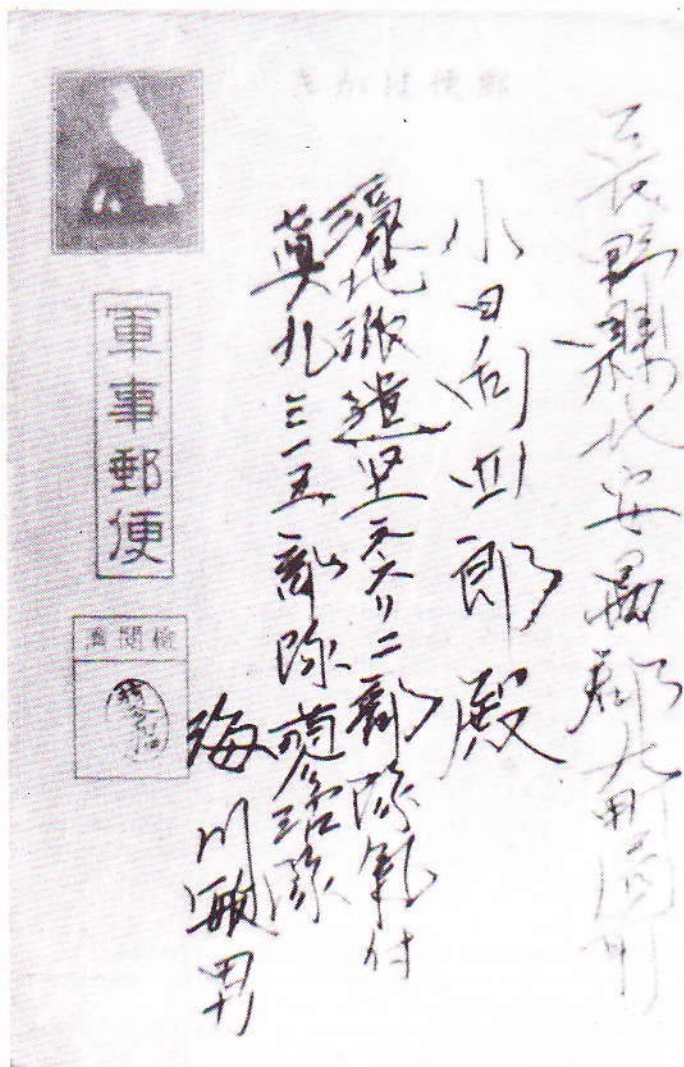 郵便はがき
長野縣北安曇郡大町
小日向四郎殿
濠北派遣堅 部隊氣付
九三一五部隊 隊
海川敏男
軍事郵便
檢閲濟